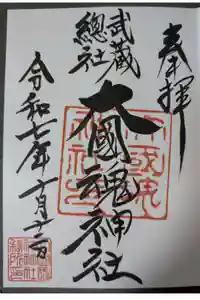 奉拝
武蔵
總社
大國魂神社
令和七年十月十二日